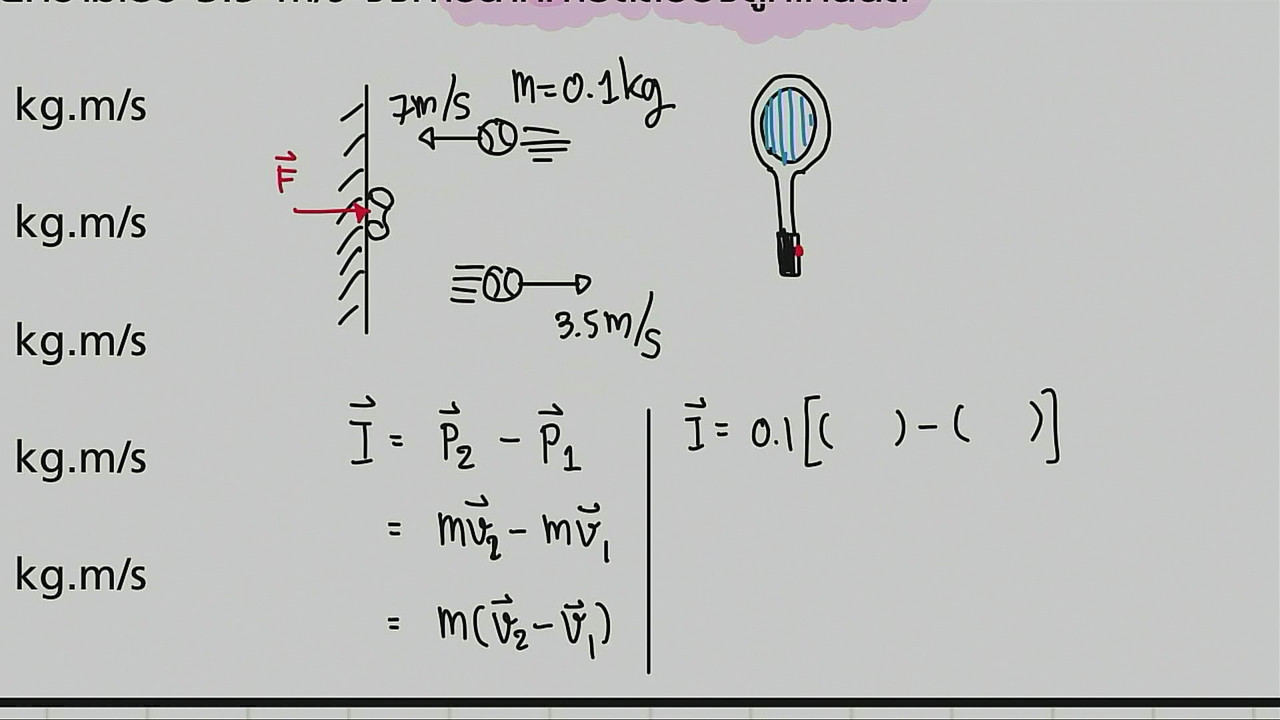 3.5 m/s
kg.m/s
kg.m/s
kg.m/s
kg.m/s
kg.m/s
7m/s
m=0.1kg
F⃗
3.5m/s
I⃗ = P⃗₂ - P⃗₁
= mv⃗₂ - mv⃗₁
= m(v⃗₂-v⃗₁)
I⃗ = 0.1[( )-( )]